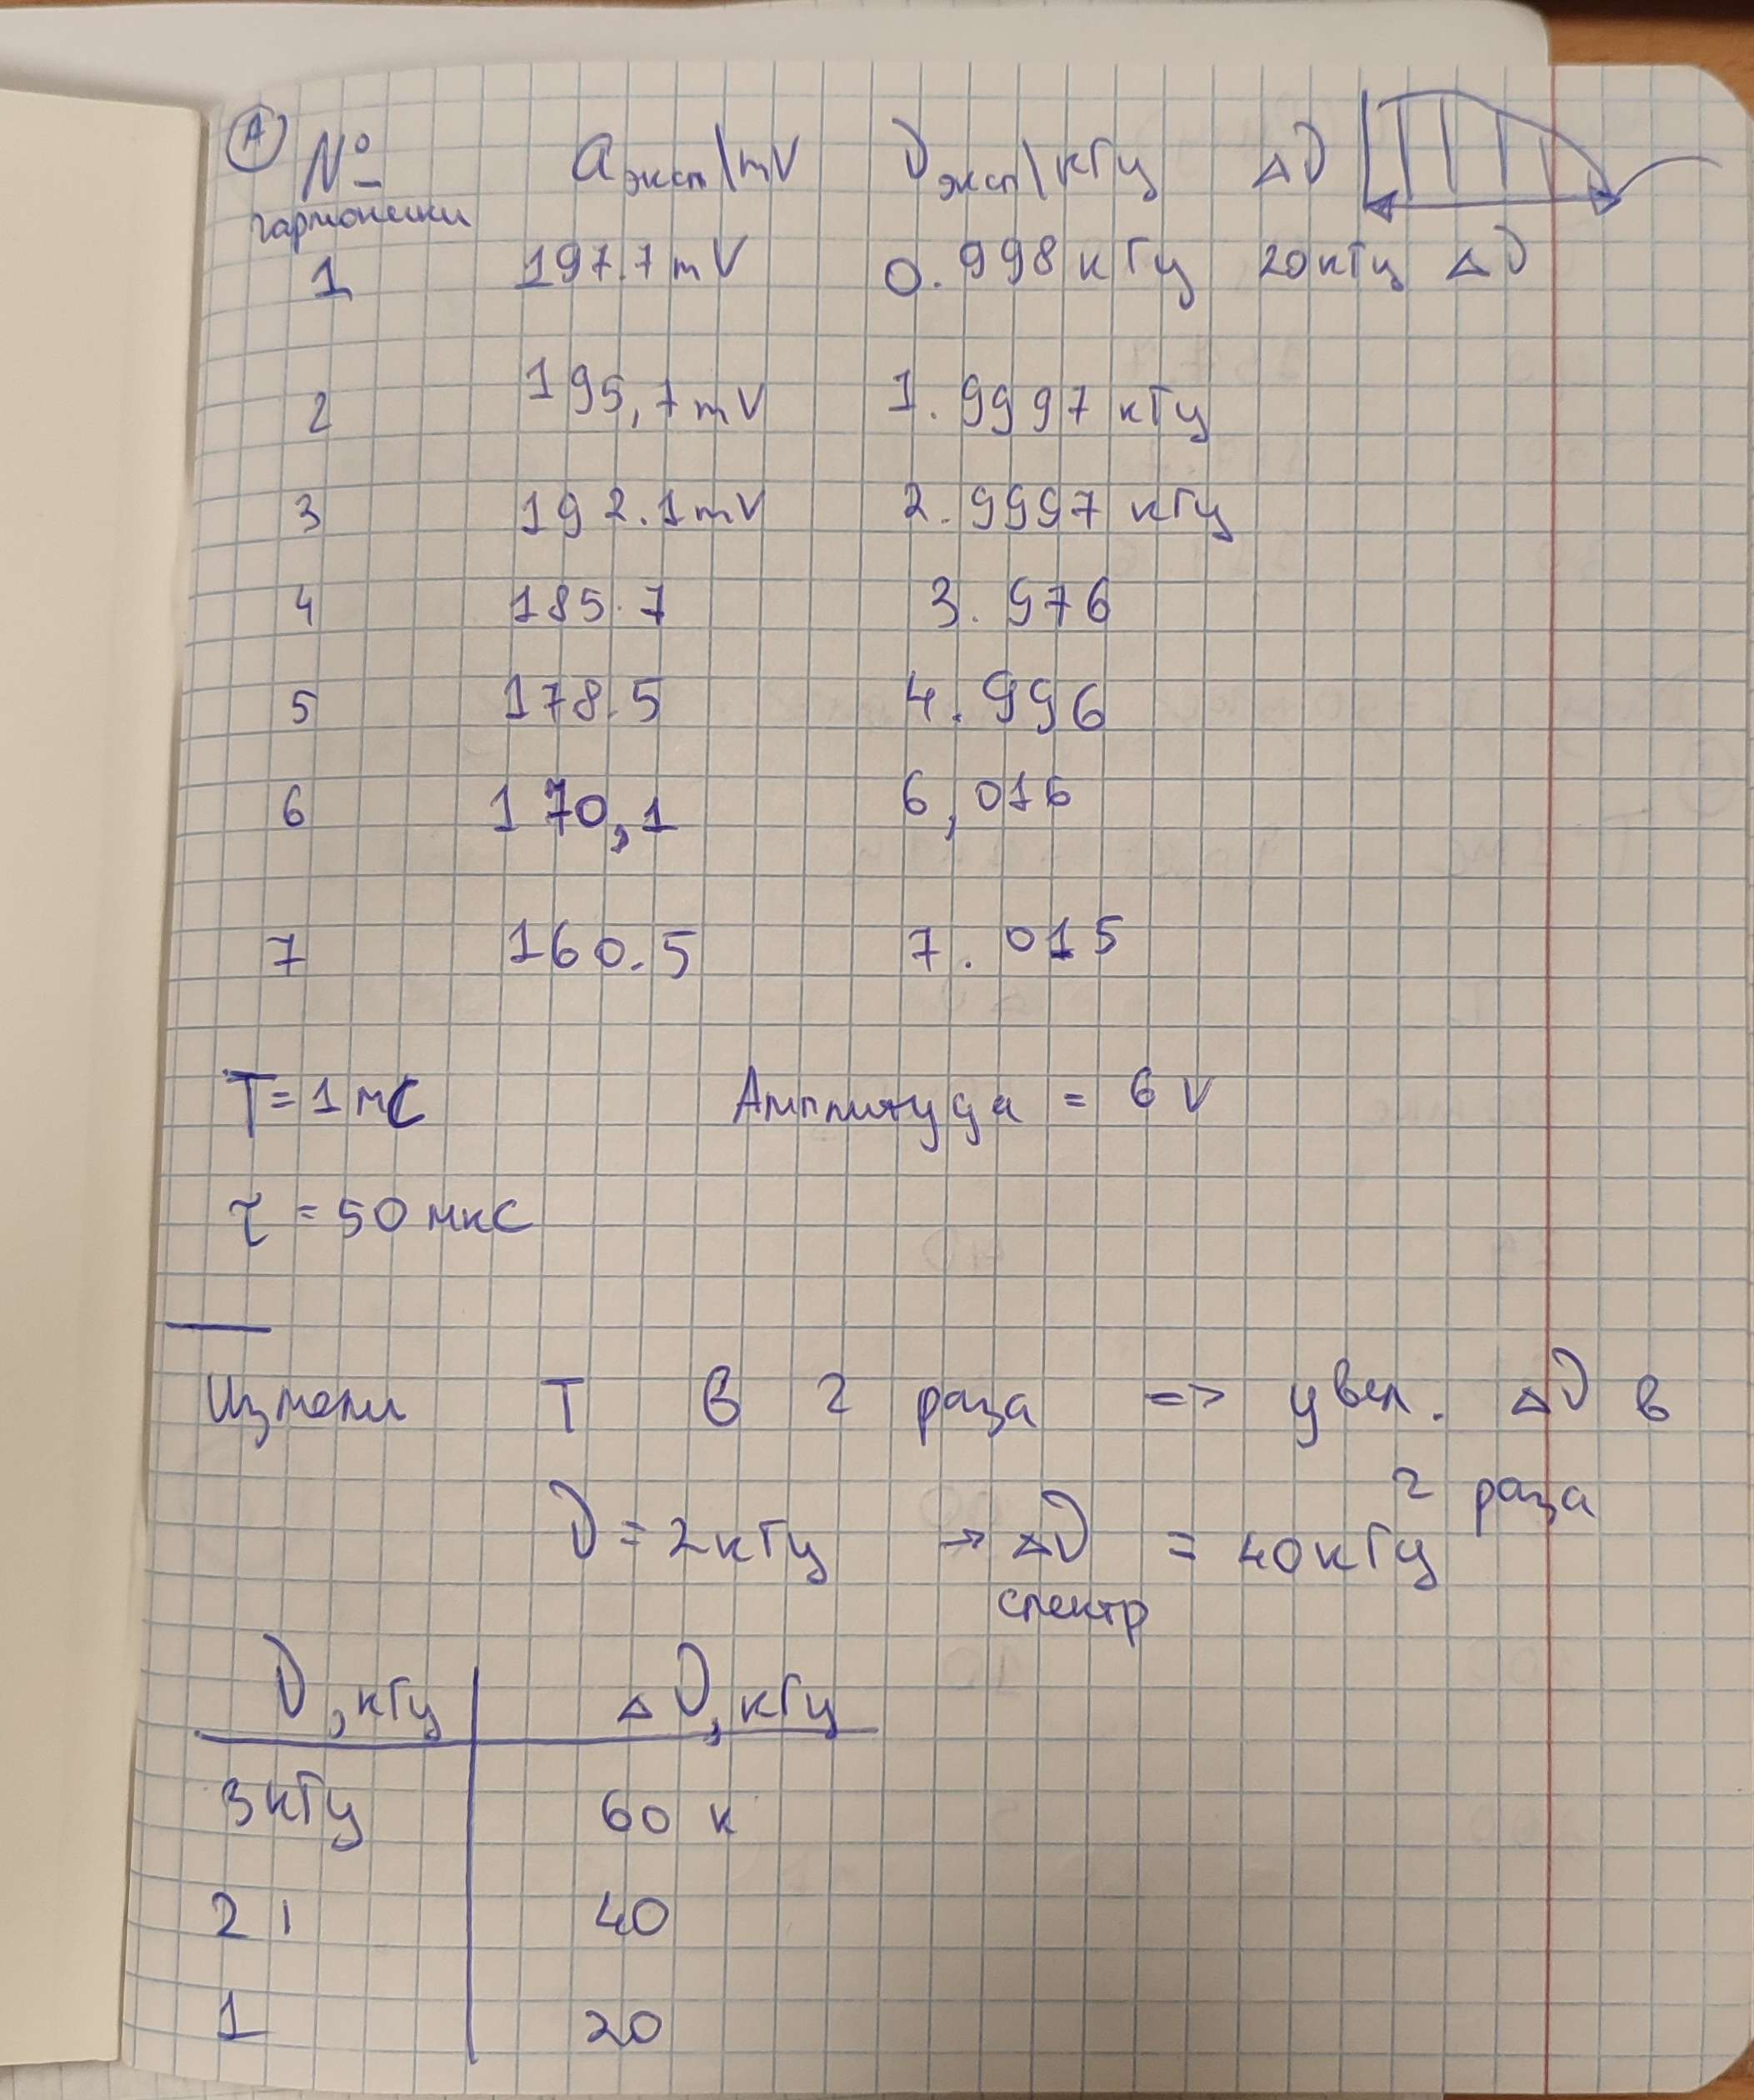 A № гармоники aэксп\mV νэксп\кГц Δν
1 197.7 mV 0.998 кГц 20 кГц Δν
2 195,7 mV 1.9997 кГц
3 192.1 mV 2.9997 кГц
4 185.7 3.976
5 178.5 4.996
6 170,1 6,016
7 160.5 7.015
T = 1 мс Амплитуда = 6 V
τ = 50 мкс
Измени T в 2 раза => увел. Δν в
2 раза
ν = 2 кГц → Δν = 40 кГц
спектр
ν, кГц Δν, кГц
3 кГц 60 к
2 40
1 20